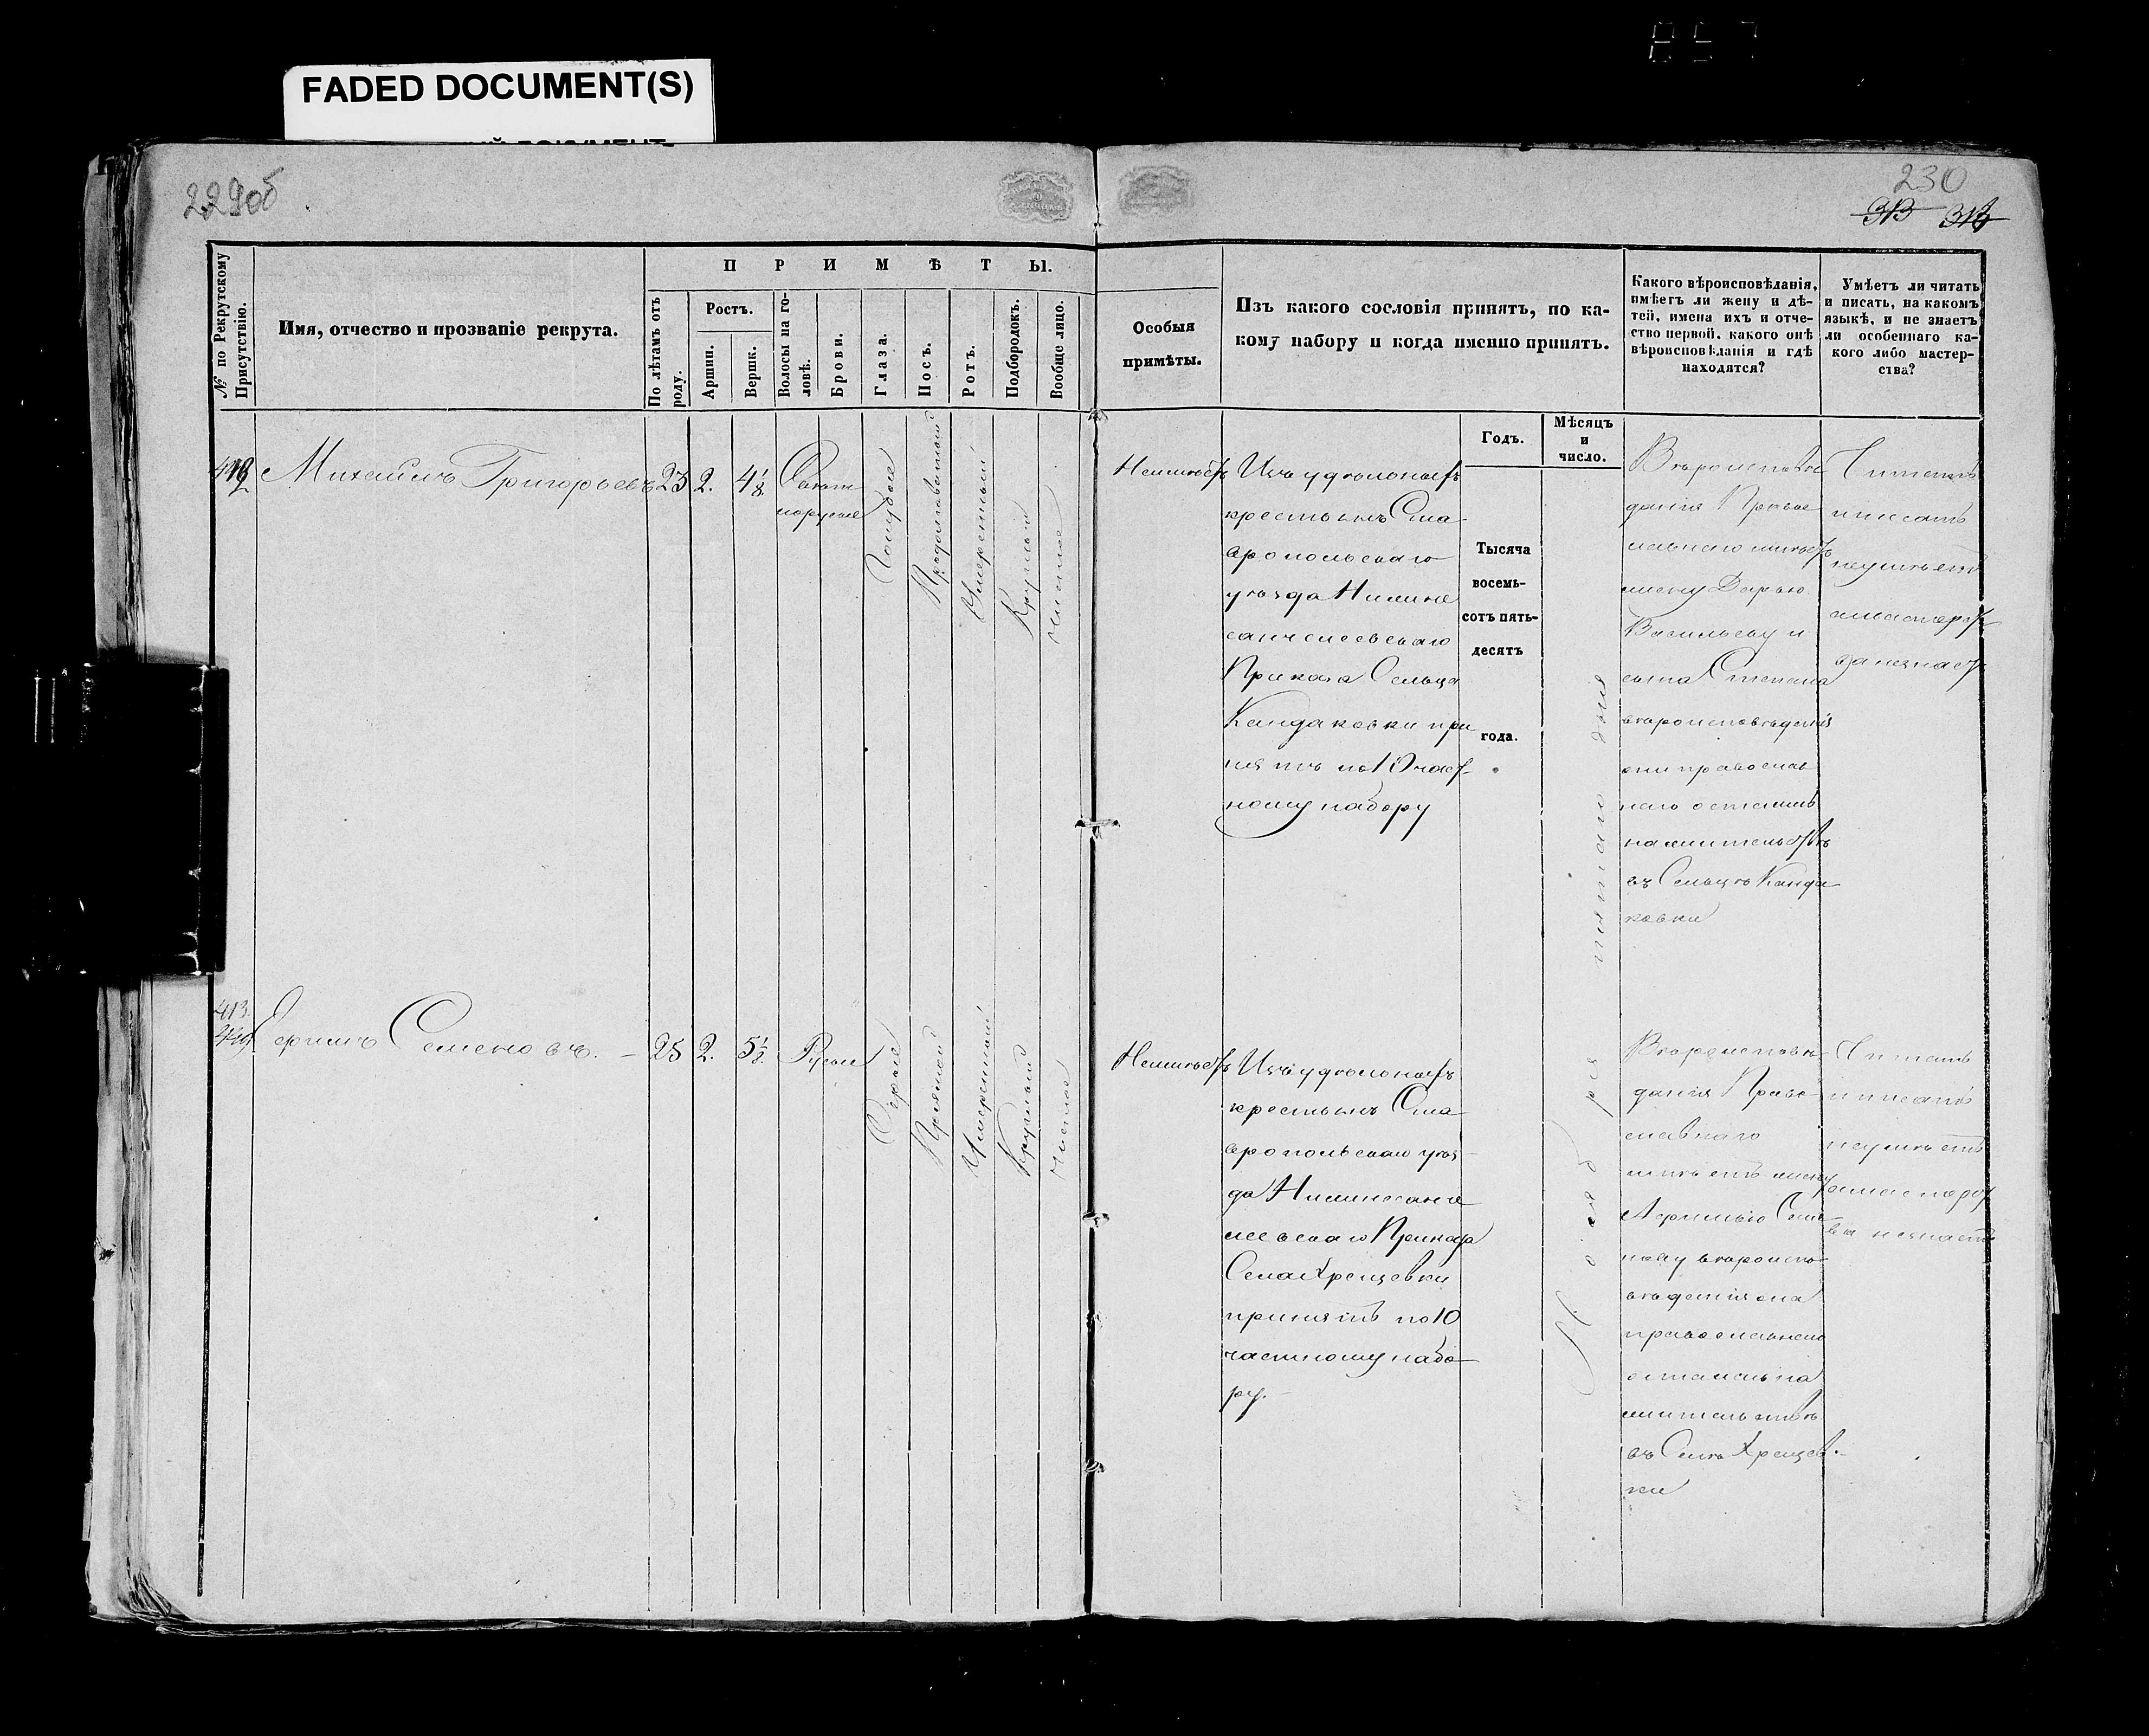 FADED DOCUMENT(S)
229об
230
313 313
№ по Рекрутскому Присутствію.
Имя, отчество и прозваніе рекрута.
ПРИМѢТЫ.
По лѣтамъ отъ роду.
Ростъ.
Аршин.
Вершк.
Волосы на головѣ.
Брови.
Глаза.
Носъ.
Ротъ.
Подбородокъ.
Вообще лицо.
Особыя
примѣты.
Изъ какого сословія принятъ, по ка-
кому набору и когда именно принятъ.
Годъ.
Мѣсяцъ
и
число.
Какого вѣроисповѣданія,
имѣетъ ли жену и дѣ-
тей, имена ихъ и отче-
ство первой, какого онѣ
вѣроисповѣданія и гдѣ
находятся?
Умѣетъ ли читать
и писать, на какомъ
языкѣ, и не знаетъ
ли особеннаго ка-
кого либо мастер-
ства?
Михаилъ Григорьевъ
23
2.
4 1/8
Свѣтло
норусые
Голубые
Продолговатый
Умеренный
Круглый
Чистое
Неимѣетъ
Изъ удѣльныхъ
крестьянъ Ста
вропольскаго
уѣзда Нижне
санчелеевскаго
Приказа Сельца
Кандаковки при
нятъ по 10 част
ному набору
Тысяча
восемь-
сотъ пять-
десятъ
года.
Ноября пятаго дня
Вѣроисповѣ
данія Право
славнаго имѣетъ
жену Дарью
Васильеву и
сына Степана
вѣроисповѣданія
они православ
наго остались
на жительствѣ
въ Сельцѣ Канда
ковки
Читать
и писать
неумѣетъ
и мастерст
ва незнаетъ
413.
Ефимъ Семеновъ.
25
2.
5 1/2
Русые
Серые
Прямой
Умеренный
Круглый
Чистое
Неимѣетъ
Изъ удѣльныхъ
крестьянъ Ста
вропольскаго уѣз
да Нижнесанче
леевскаго Приказа
Села Хрещевки
принятъ по 10
частному набо
ру.
Вѣроисповѣ
данія Право
славнаго
имѣетъ жену
вѣроиспо
вѣданія она
православнаго
осталась на
жительствѣ
въ Селѣ Хрещев-
ки
Читать
и писать
неумѣетъ
и мастерст
ва незнаетъ